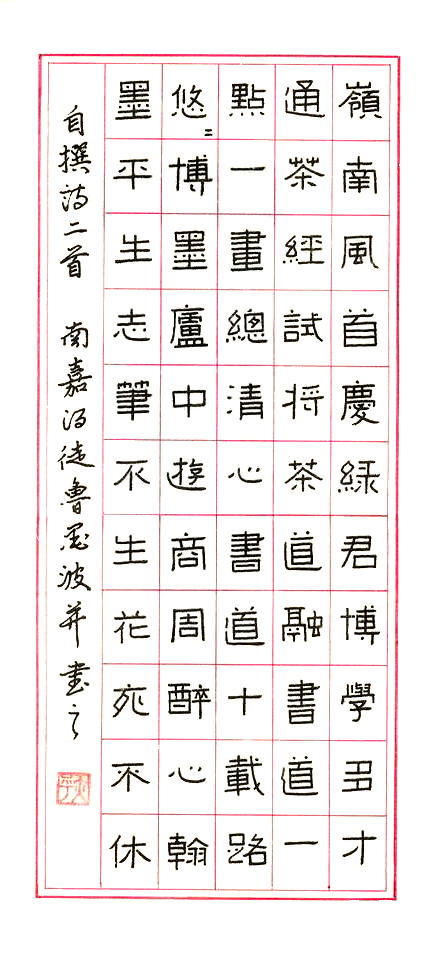 嶺南風首慶綠君博學多才
通茶經試将茶道融書道一
點一畫總清心書道十載路
悠〻博墨廬中遊商周醉心翰
墨平生志筆不生花死不休
自撰诗二首 南嘉徒魯墨波并書之